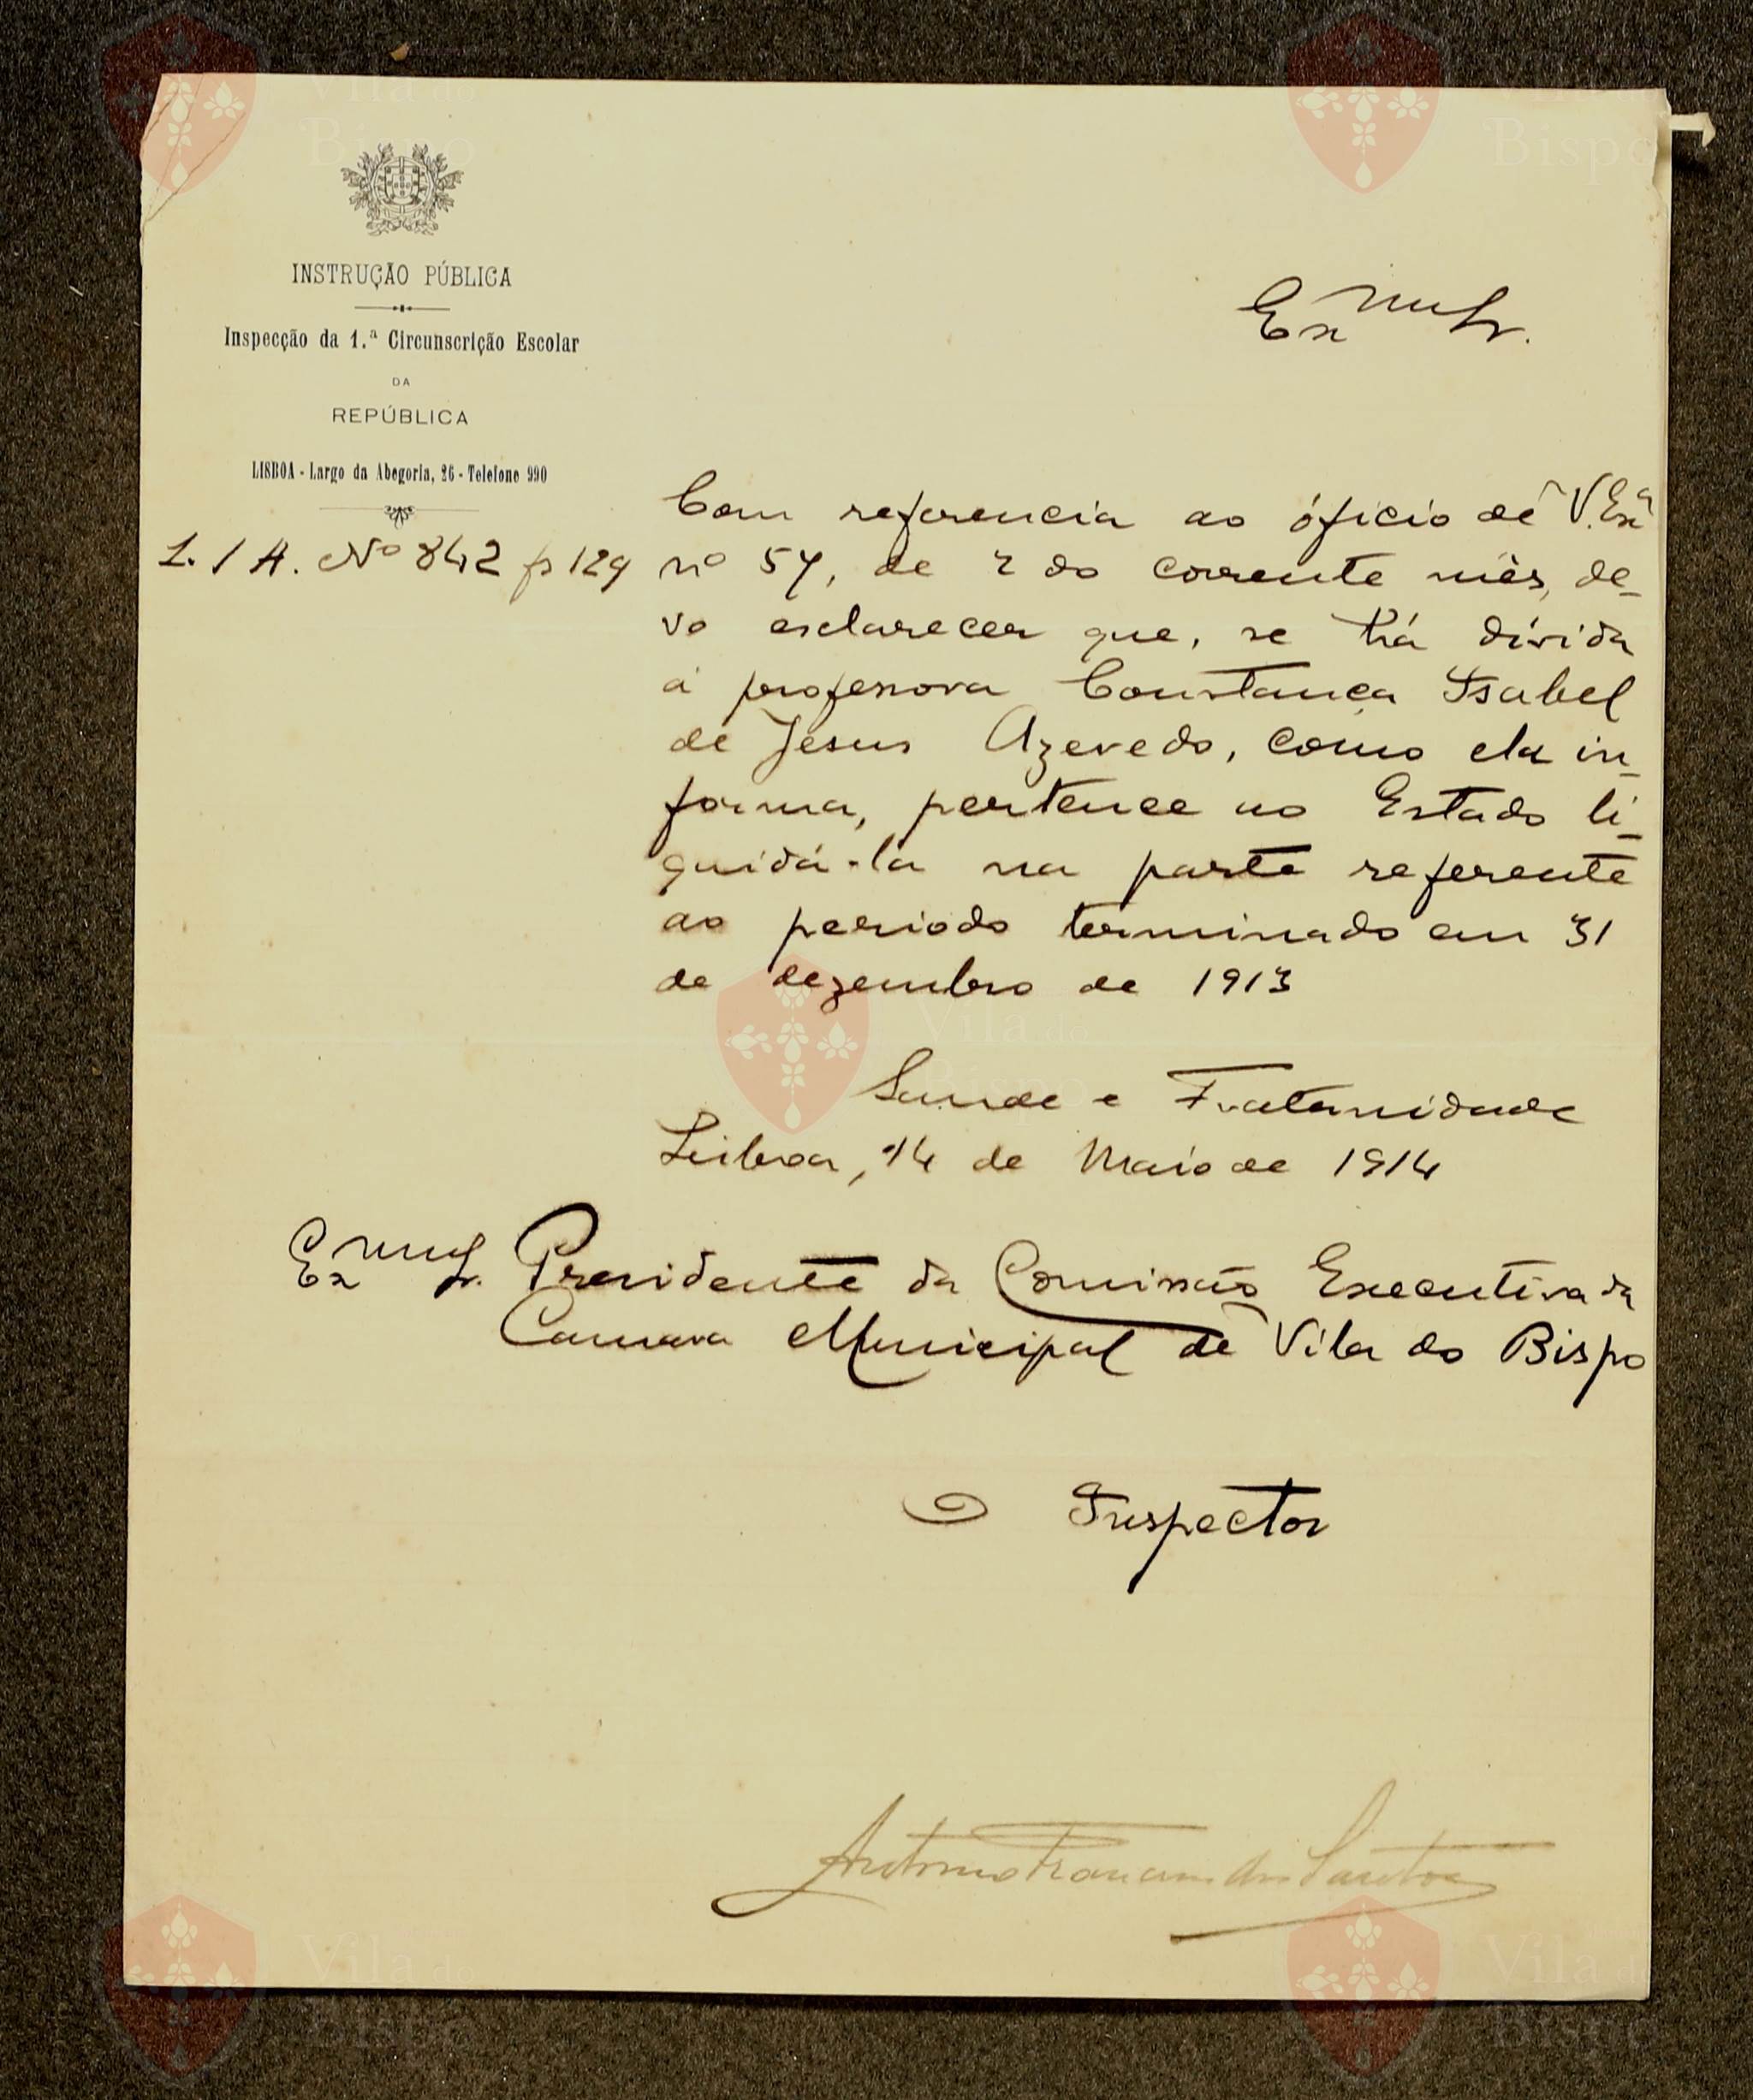 INSTRUÇÃO PÚBLICA
Inspecção da 1.ª Circunscrição Escolar
DA
REPÚBLICA
LISBOA - Largo da Abegoria, 26 - Telefone 990
L. 1 A. Nº 842 p 129
Exmo Sr.
Com referencia ao óficio de V. Exª
nº 57, de 2 do corrente mês, de-
vo esclarecer que, se há dívida
á professora Constança Isabel
de Jesus Azevedo, como ela in-
forma, pertence ao Estado li-
quidá-la na parte referente
ao periodo terminado em 31
de dezembro de 1913
Saude e Fraternidade
Lisboa, 14 de Maio de 1914
Exmo Sr. Presidente da Comissão Executiva da
Camara Municipal de Vila do Bispo
O Inspector
Antonio dos Santos
Vila do
Bispo
Bispo
Vila do
Bispo
Vila do
Bispo
Vila do
Bispo